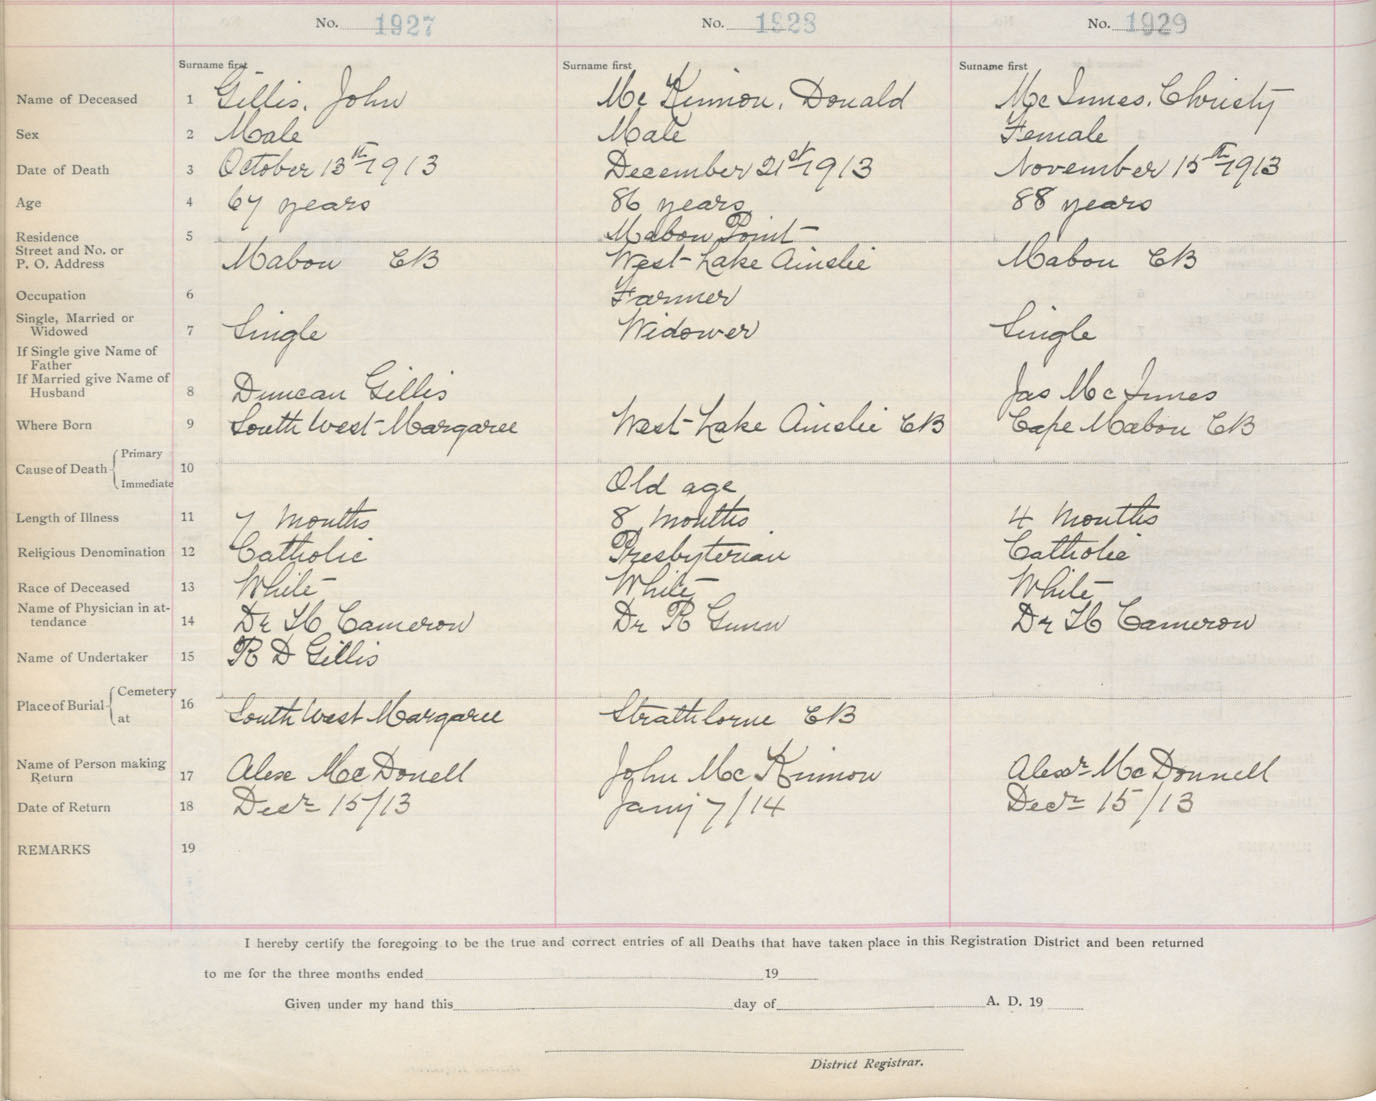 No. 1927 No. 1928 No. 1929
Surname first Surname first Surname first
Name of Deceased 1 Gillis, John Mc Kinnon, Donald Mc Innes, Christy
Sex 2 Male Male Female
Date of Death 3 October 13th 1913 December 21st 1913 November 15th 1913
Age 4 67 years 86 years 88 years
Residence 5 Mabou Point
Street and No. or
P. O. Address Mabou CB West Lake Ainslie Mabou CB
Occupation 6 Farmer
Single, Married or
Widowed 7 Single Widower Single
If Single give Name of
Father
If Married give Name of
Husband 8 Duncan Gillis Jas Mc Innes
Where Born 9 South West Margaree West Lake Ainslie CB Cape Mabou CB
Cause of Death Primary 10
Immediate Old age
Length of Illness 11 7 months 8 months 4 months
Religious Denomination 12 Catholic Presbyterian Catholic
Race of Deceased 13 White White White
Name of Physician in at-
tendance 14 Dr H Cameron Dr R Gunn Dr H Cameron
Name of Undertaker 15 R D Gillis
Place of Burial Cemetery 16
at South West Margaree Strathlorne CB
Name of Person making
Return 17 Alex Mc Donell John Mc Kinnon Alexr Mc Donnell
Date of Return 18 Decr 15/13 Jany 7/14 Decr 15/13
REMARKS 19
I hereby certify the foregoing to be the true and correct entries of all Deaths that have taken place in this Registration District and been returned
to me for the three months ended 19
Given under my hand this day of A. D. 19
District Registrar.